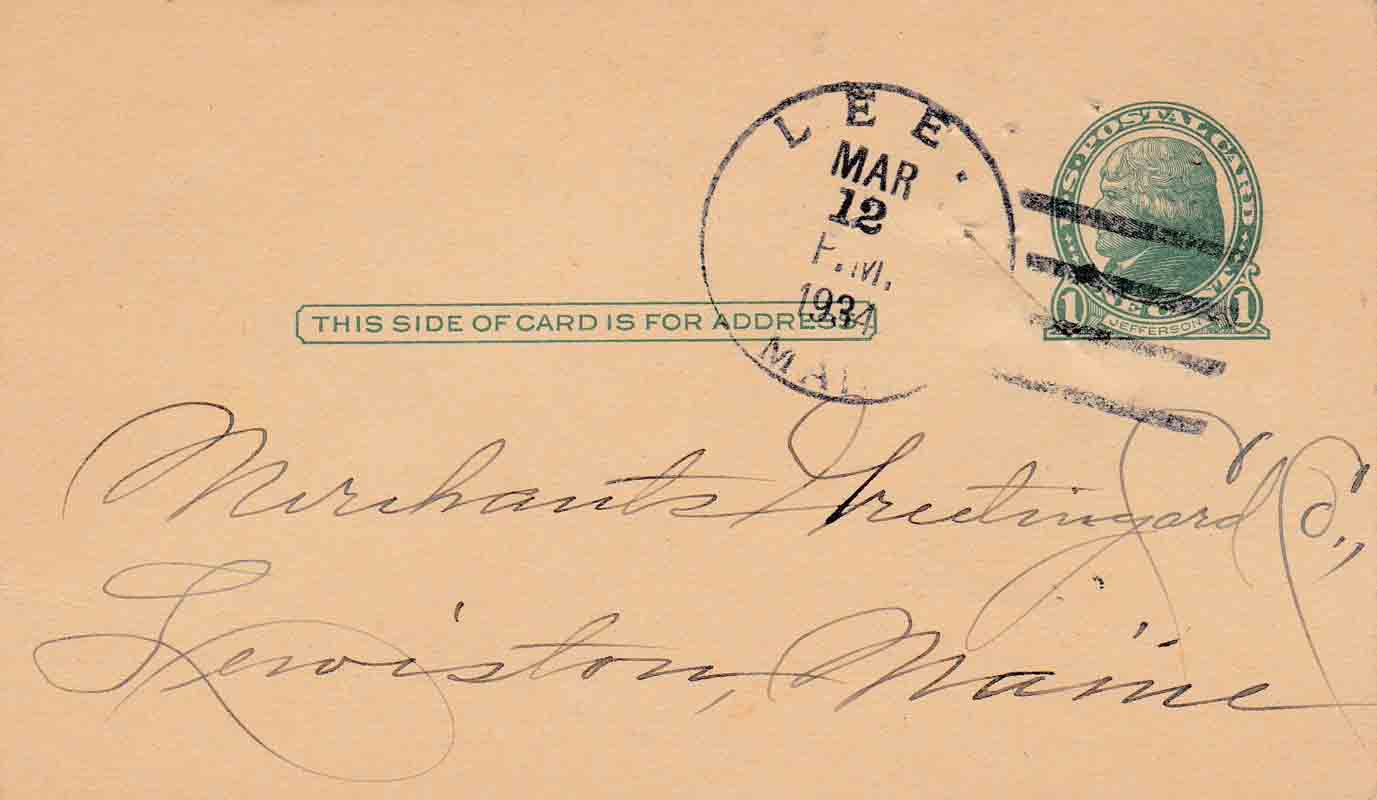 LEE.
MAR
12
P.M.
1934
U.S. POSTAL CARD
ONE CENT
1 JEFFERSON 1
THIS SIDE OF CARD IS FOR ADDRESS
Merchants Greeting Card Co.,
Lewiston, Maine